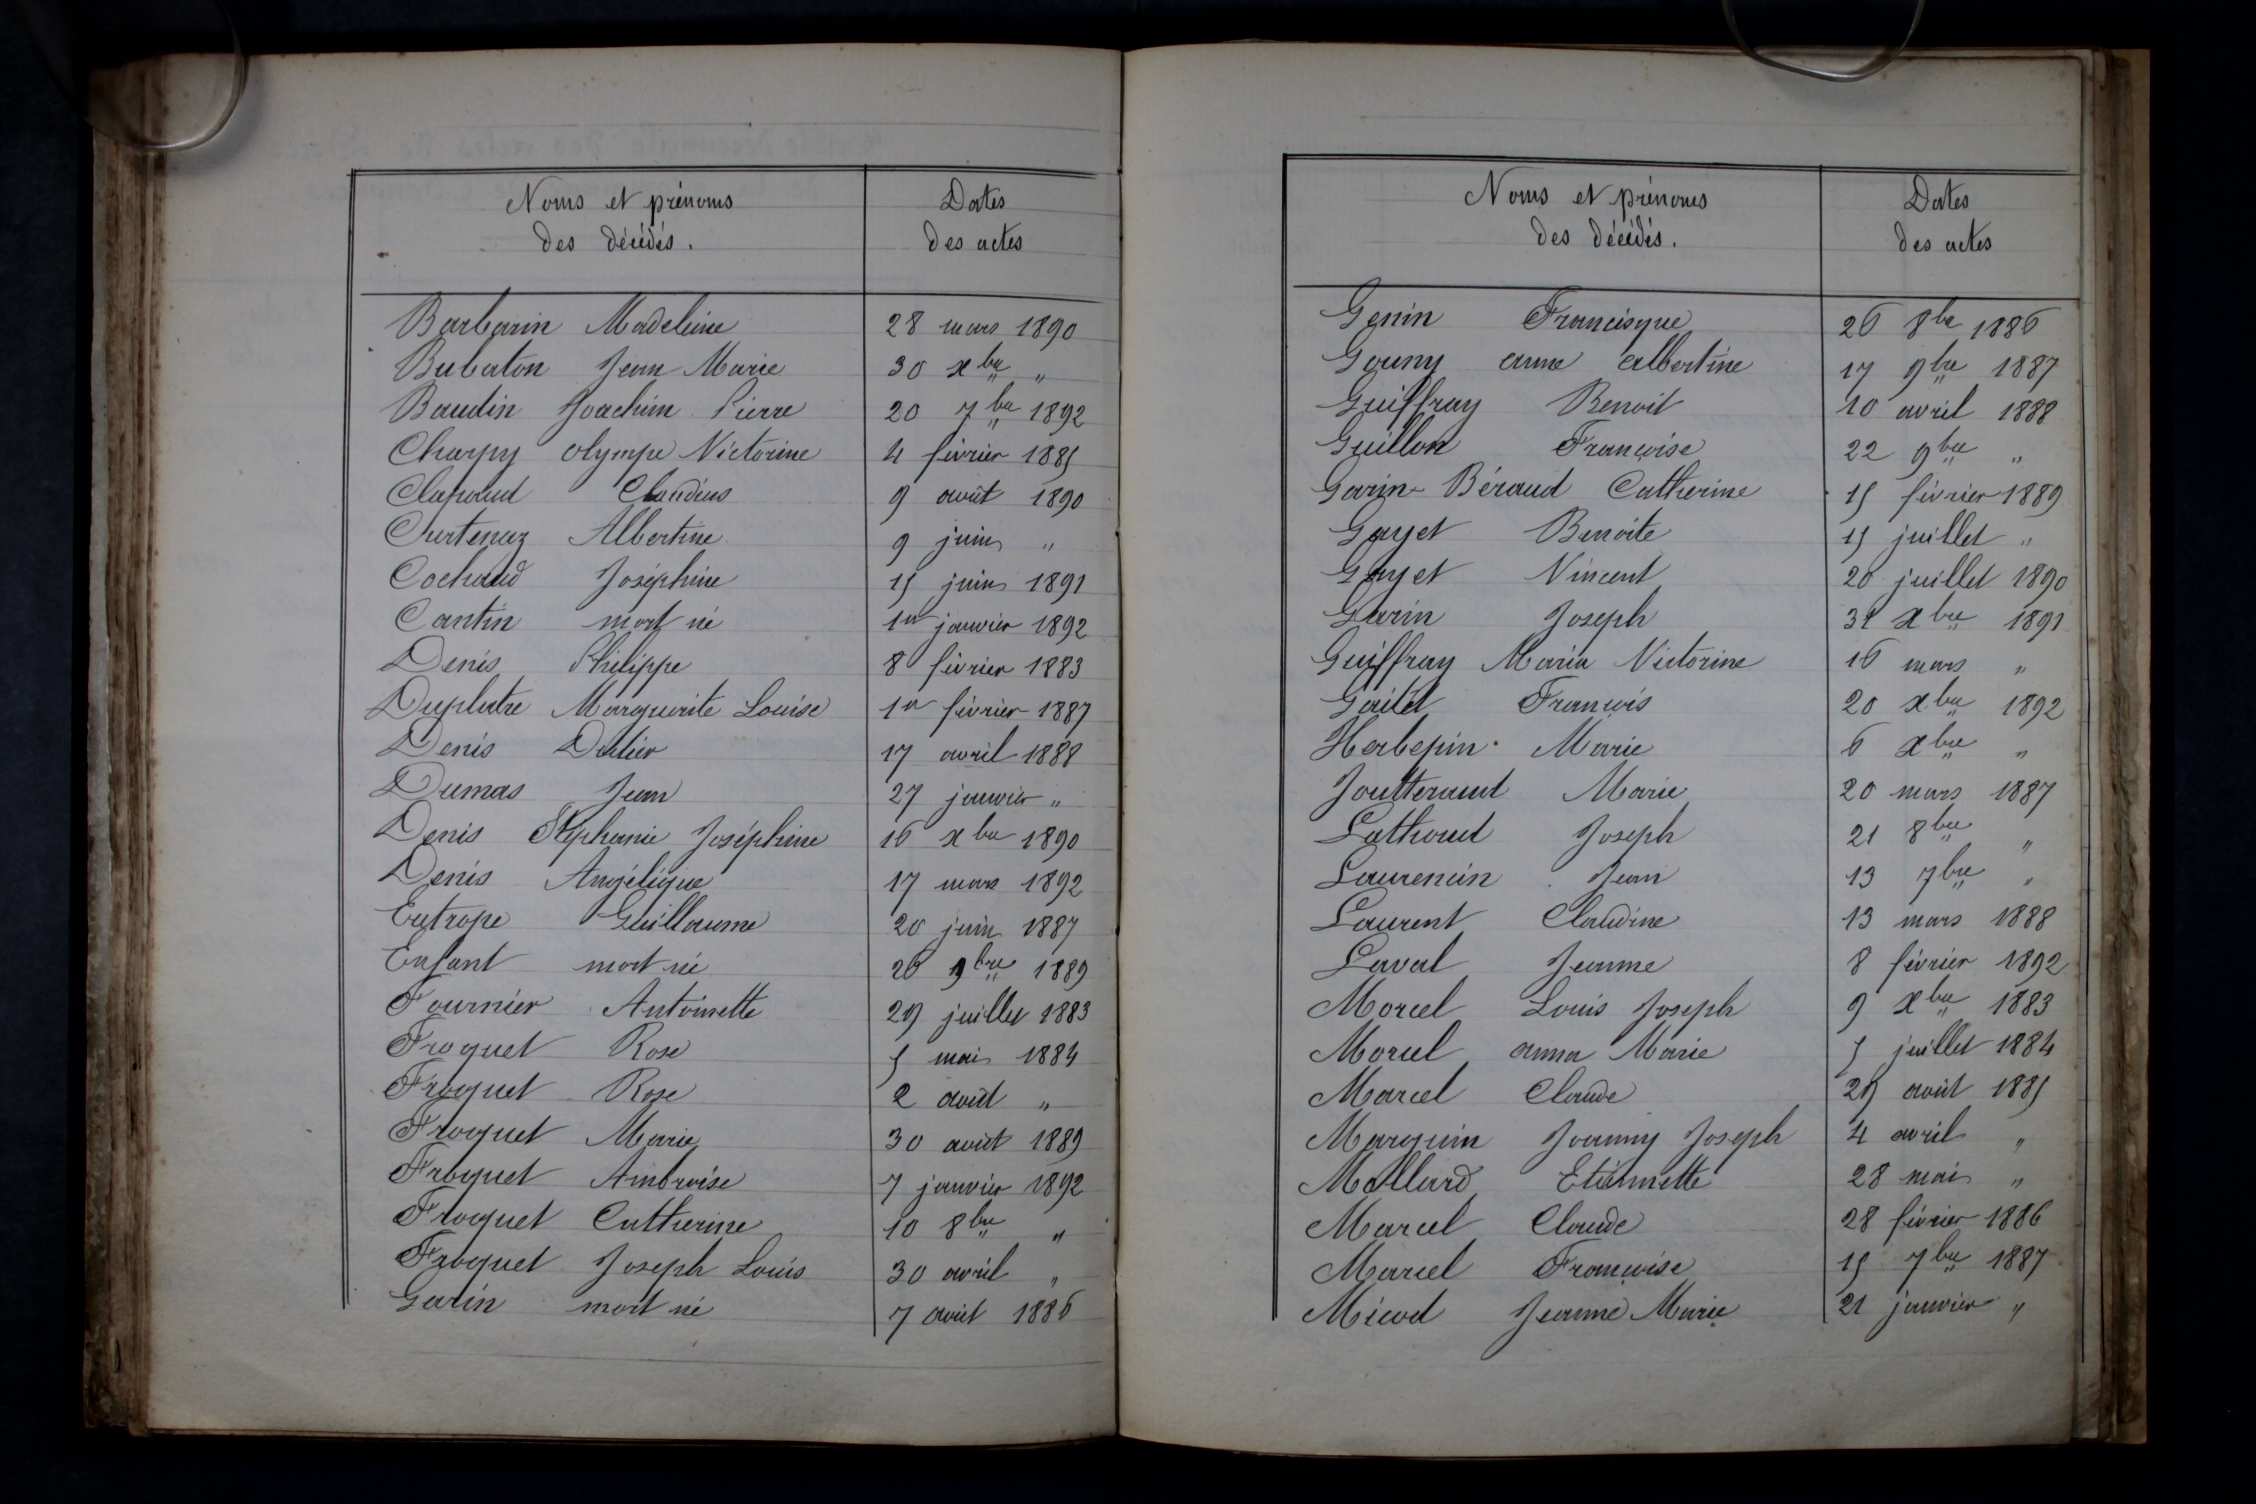 Noms et prénoms
des décédés.
Dates
des actes
Barbarin Madeleine 28 mars 1890
Bubaton Jean Marie 30 xbre "
Baudin Joachim Pierre 20 7bre 1892
Charpy Olympe Victorine 4 février 1885
Claparud Claudius 9 août 1890
Curtenaz Albertine 9 juin "
Cochaud Joséphine 15 juin 1891
Cantin mort né 1er janvier 1892
Denis Philippe 8 février 1883
Duplatre Marguerite Louise 1er février 1887
Denis Didier 17 avril 1888
Dumas Jean 27 janvier "
Denis Stéphanie Joséphine 16 xbre 1890
Denis Angélique 17 mars 1892
Eutrope Guillaume 20 juin 1887
Enfant mort né 26 9bre 1889
Fournier Antoinette 29 juillet 1883
Froquet Rose 5 mai 1884
Froquet Rose 2 août "
Froquet Marie 30 août 1889
Froquet Ambroise 7 janvier 1892
Froquet Catherine 10 8bre "
Froquet Joseph Louis 30 avril "
Garin mort né 7 août 1886
Noms et prénoms
des décédés.
Dates
des actes
Genin Francisque 26 8bre 1886
Gouny anne albertine 17 9bre 1887
Guiffray Benoit 10 avril 1888
Guillon Françoise 22 9bre "
Garin-Béraud Catherine 15 février 1889
Gayet Benoite 15 juillet "
Gayet Vincent 20 juillet 1890
Garin Joseph 31 xbre 1891
Guiffray Maria Victorine 16 mars "
Goitet François 20 xbre 1892
Herbepin Marie 6 xbre "
Joutteraud Marie 20 mars 1887
Lathoud Joseph 21 8bre "
Laurencin Jean 13 7bre "
Laurent Claudine 13 mars 1888
Laval Jeanne 8 février 1892
Morcel Louis Joseph 9 xbre 1883
Morcel anna Marie 5 juillet 1884
Marcel Claude 29 août 1885
Marquin Joanny Joseph 4 avril "
Mollard Etiennette 28 mai "
Marcel Claude 28 février 1886
Marcel Françoise 15 7bre 1887
Micod Jeanne Marie 21 janvier "